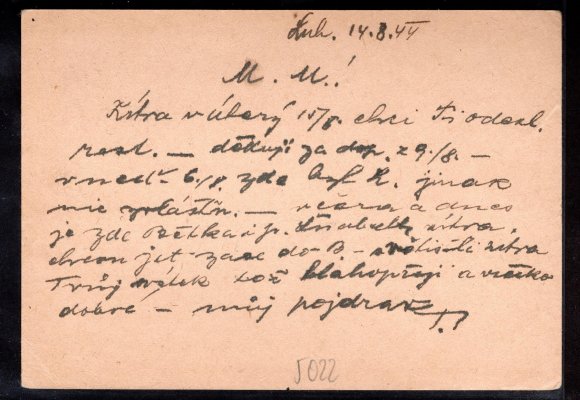 Luh. 14.8.44
M. M.!
Zítra v úterý 15/8. chci Ti odesl.
rest. — děkuji za dop. z 9./8. —
v neď. 6./8. zde byl K. jinak
nic zvláštn. — včera a dnes
je zde Bětka i p. zítra.
chcem jet zase do B. — zítra
Tvůj svátek též blahopřeji a všecko
dobré — můj pozdrav
5022